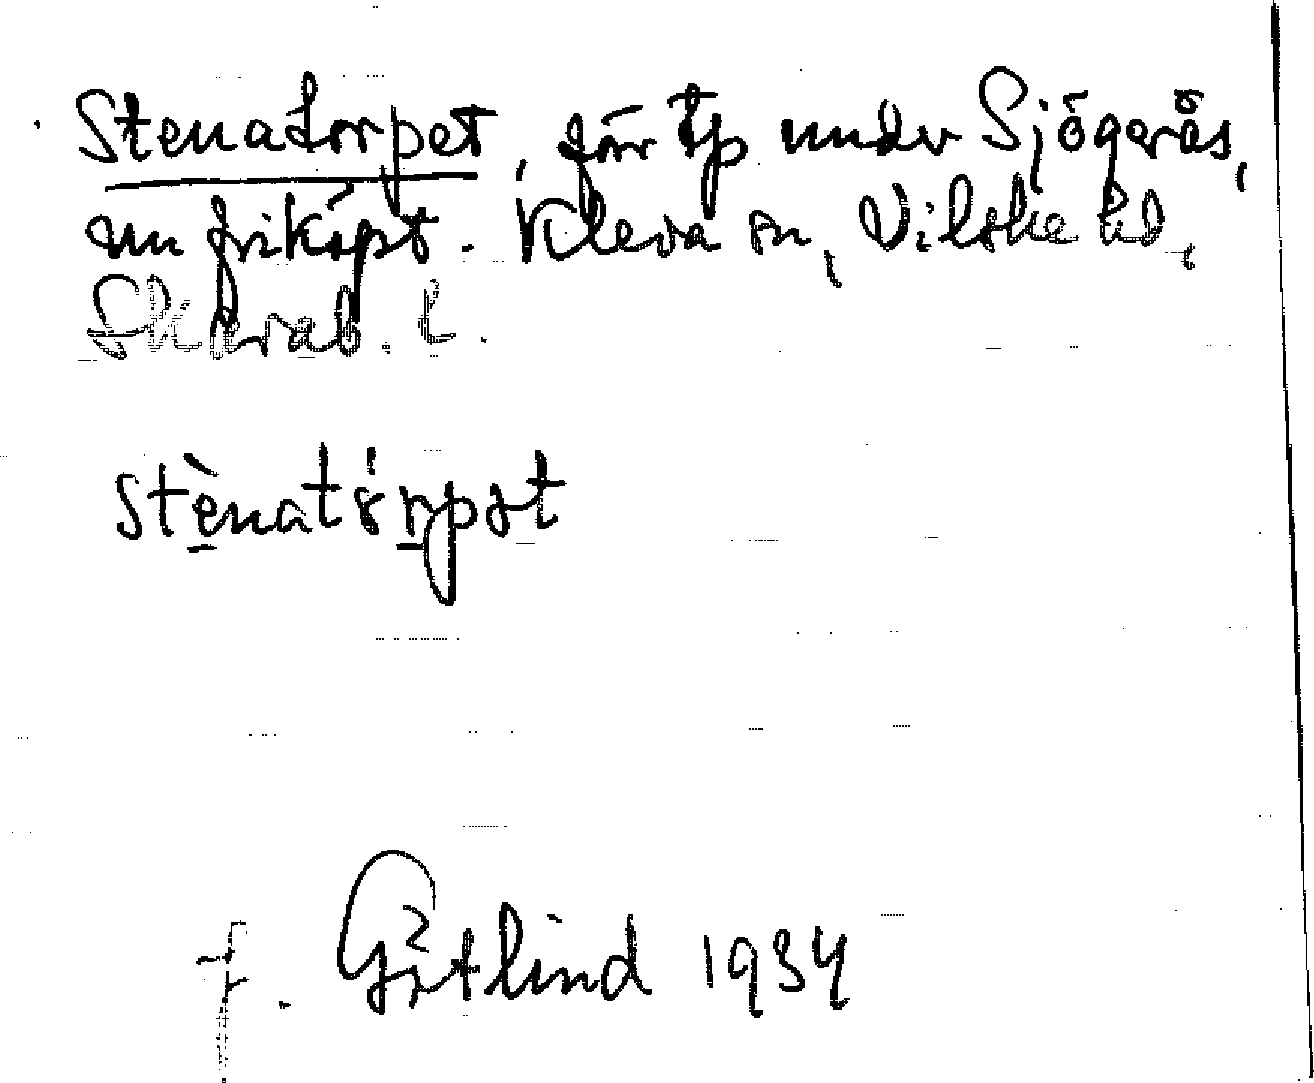 Stenatorpet, förr tp under Sjögerås,
nu friköpt. Kleva sn, Vilske hd,
Skarab. l.
stènatörpet
J. Götlind 1934